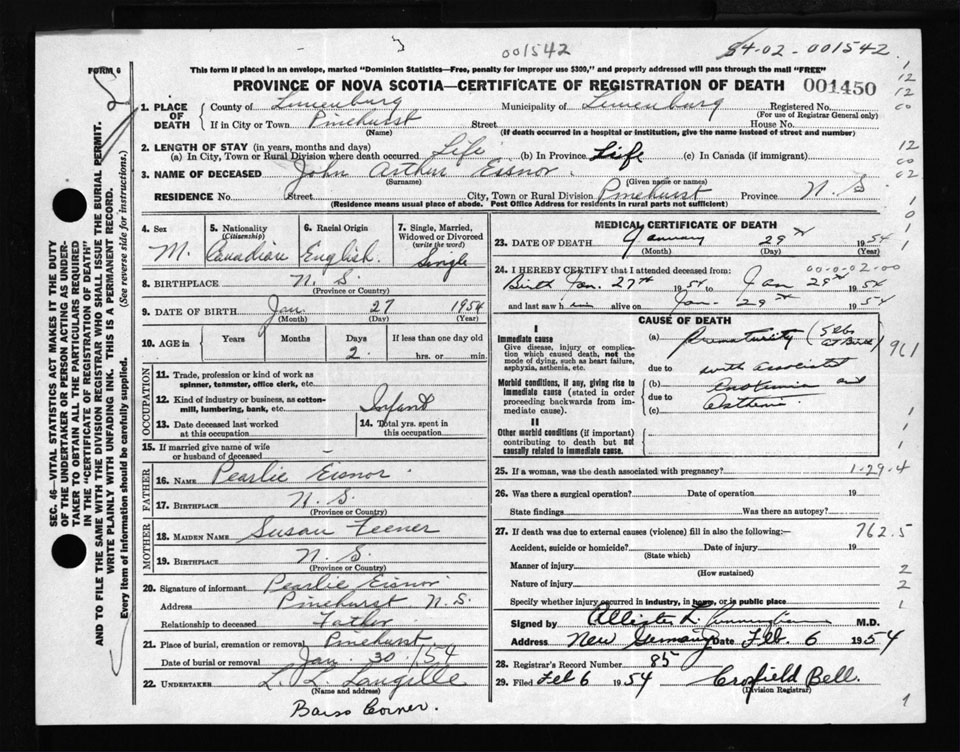 001542
54-02-001542
FORM 6
This form if placed in an envelope, marked "Dominion Statistics—Free, penalty for improper use $300," and properly addressed will pass through the mail "FREE"
PROVINCE OF NOVA SCOTIA—CERTIFICATE OF REGISTRATION OF DEATH 001450
1. PLACE OF DEATH County of Lunenburg Municipality of Lunenburg Registered No.
(For use of Registrar General only)
If in City or Town Pinehurst Street House No.
(Name) (If death occurred in a hospital or institution, give the name instead of street and number)
2. LENGTH OF STAY (in years, months and days)
(a) In City, Town or Rural Division where death occurred Life (b) In Province Life (c) In Canada (if immigrant)
3. NAME OF DECEASED John Arthur Eisnor
(Surname) (Given name or names)
RESIDENCE No. Street City, Town or Rural Division Pinehurst Province N. S.
(Residence means usual place of abode. Post Office Address for residents in rural parts not sufficient)
4. Sex M.
5. Nationality (Citizenship) Canadian
6. Racial Origin English
7. Single, Married, Widowed or Divorced (write the word) Single
8. BIRTHPLACE N. S.
(Province or Country)
9. DATE OF BIRTH Jan. 27 1954
(Month) (Day) (Year)
10. AGE in Years Months Days 2. If less than one day old hrs. or min.
OCCUPATION
11. Trade, profession or kind of work as spinner, teamster, office clerk, etc.
12. Kind of industry or business, as cotton-mill, lumbering, bank, etc. Infant
13. Date deceased last worked at this occupation
14. Total yrs. spent in this occupation
15. If married give name of wife or husband of deceased
FATHER
16. NAME Pearlie Eisnor
17. BIRTHPLACE N. S.
(Province or Country)
MOTHER
18. MAIDEN NAME Susan Feener
19. BIRTHPLACE N. S.
(Province or Country)
20. Signature of informant Pearlie Eisnor
Address Pinehurst N. S.
Relationship to deceased Father
21. Place of burial, cremation or removal Pinehurst
Date of burial or removal Jan. 30 /54
22. UNDERTAKER L. L. Langille
(Name and address)
Barss Corner.
MEDICAL CERTIFICATE OF DEATH
23. DATE OF DEATH January 29th 1954
(Month) (Day) (Year)
24. I HEREBY CERTIFY that I attended deceased from: 00-0-02-00
Birth Jan. 27th 1954 to Jan 29th 1954
and last saw h im alive on Jan. 29th 1954
CAUSE OF DEATH
I
Immediate cause
Give disease, injury or complication which caused death, not the mode of dying, such as heart failure, asphyxia, asthenia, etc.
(a) Prematurity (5 lbs at Birth) 961
due to with associated
Morbid conditions, if any, giving rise to immediate cause (stated in order proceeding backwards from immediate cause).
(b) and
due to
(c)
II
Other morbid conditions (if important) contributing to death but not causally related to immediate cause.
25. If a woman, was the death associated with pregnancy? 1-29-4
26. Was there a surgical operation? Date of operation 19
State findings Was there an autopsy?
27. If death was due to external causes (violence) fill in also the following:— 762.5
Accident, suicide or homicide? Date of injury 19
(State which)
Manner of injury
(How sustained)
Nature of injury
Specify whether injury occurred in industry, in home, or in public place
Signed by Allister L. Cunningham M.D.
Address New Germany Date Feb. 6 1954
28. Registrar's Record Number 85
29. Filed Feb 6 1954 Crofield Bell.
(Division Registrar)
SEC. 46—VITAL STATISTICS ACT MAKES IT THE DUTY
OF THE UNDERTAKER OR PERSON ACTING AS UNDER-
TAKER TO OBTAIN ALL THE PARTICULARS REQUIRED
IN THE "CERTIFICATE OF REGISTRATION OF DEATH"
AND TO FILE THE SAME WITH THE DIVISION REGISTRAR WHO SHALL ISSUE THE BURIAL PERMIT.
WRITE PLAINLY WITH UNFADING INK. THIS IS A PERMANENT RECORD.
Every item of information should be carefully supplied. (See reverse side for instructions.)
1
12
12
00
12
00
02
1
0
1
1
1
1
2
2
1